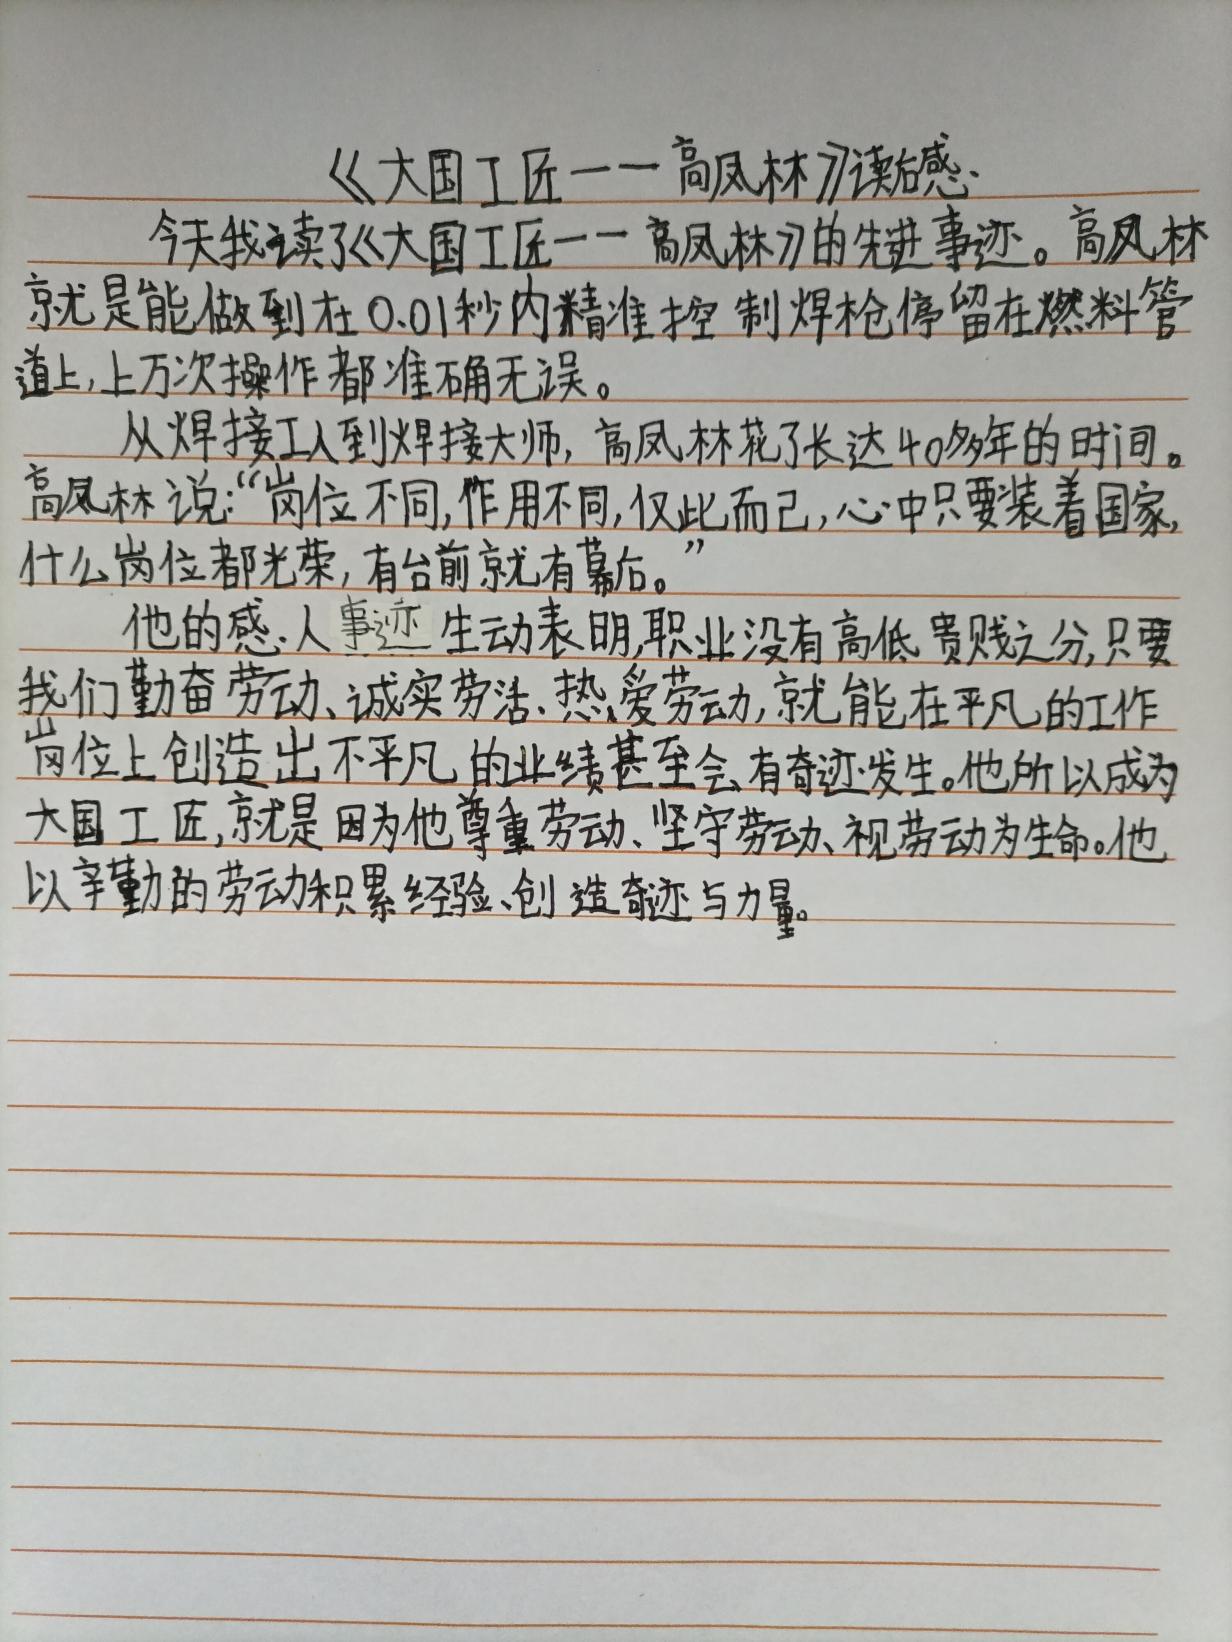 《大国工匠一一高凤林》读后感.
今天我读了《大国工匠一一高凤林》的先进事迹。高凤林
就是能做到在0.01秒内精准控制焊枪停留在燃料管
道上,上万次操作都准确无误。
从焊接工人到焊接大师,高凤林花了长达40多年的时间。
高凤林说:“岗位不同,作用不同,仅此而己,心中只要装着国家,
什么岗位都光荣,有台前就有幕后。”
他的感人事迹生动表明,职业没有高低贵贱之分,只要
我们勤奋劳动、诚实劳活、热爱劳动,就能在平凡的工作
岗位上创造出不平凡的业绩甚至会有奇迹发生。他所以成为
大国工匠,就是因为他尊重劳动、坚守劳动、视劳动为生命。他
以辛勤的劳动积累经验、创造奇迹与力量。